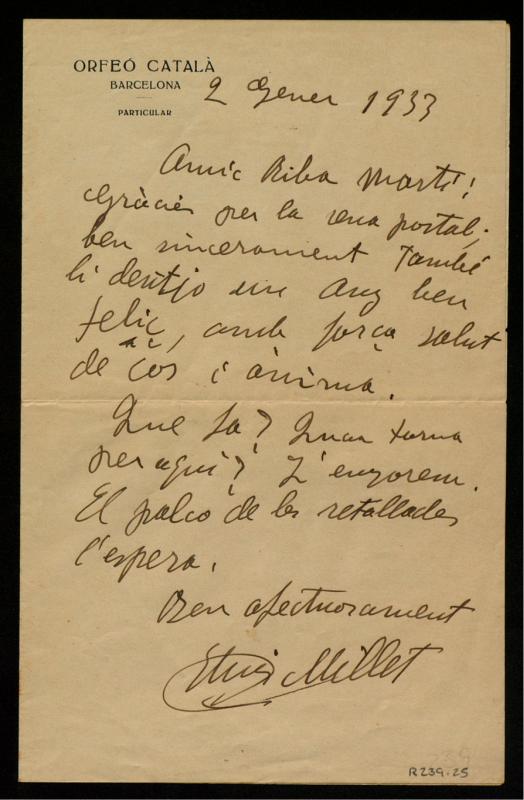 ORFEÓ CATALÀ
BARCELONA
PARTICULAR
2 Gener 1933
Amic Riba Martí:
Gràcies per la seva postal;
ben sincerament també
li desitjo un any ben
feliç, amb força salut
de cos i ànima.
Que fa? Quan torna
per aquí? L'enyorem.
El palco de les retallades
l'espera.
Ben afectuosament
Millet
R239-25